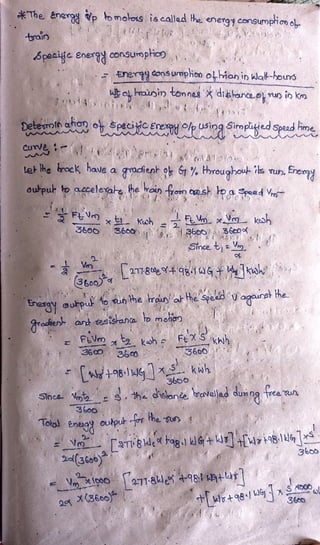 * The Energy i/p to motors is called the energy consumption of
train
Specific Energy Consumption
= Energy consumption of train in watt-hours
Wt of train in tonnes X distance of run in km
Determination of Specific Energy o/p using Simplified Speed time
curve :-
Let the track have a gradient of G % throughout its run. Energy
output to accelerate the train from rest to a Speed Vm
= 1/2 Ft Vm / 3600 x t1 / 3600 kwh = 1/2 Ft Vm / 3600 x Vm / 3600α kwh
Since t1 = Vm / α
= 1/2 Vm² / (3600)²α [277.8 We α + 98.1 WG + Wr] kwh
Energy output to run the train at the Speed V against the
gradient and resistance to motion
= Ft Vm / 3600 x t2 / 3600 kwh = Ft' x S' / 3600 kWh
= [Wr + 98.1 WG] x S' / 3600 kwh
Since Vm t2 / 3600 = S', the distance travelled during free run
Total Energy output for the run
= Vm² / 2α(3600)² [277.8 We α + 98.1 WG + Wr] + [Wr + 98.1 WG] x S' / 3600
= Vm² x 1000 / 2α x (3600)² [277.8 We α + 98.1 WG + Wr]
+ [Wr + 98.1 WG] x S' x 1000 / 3600